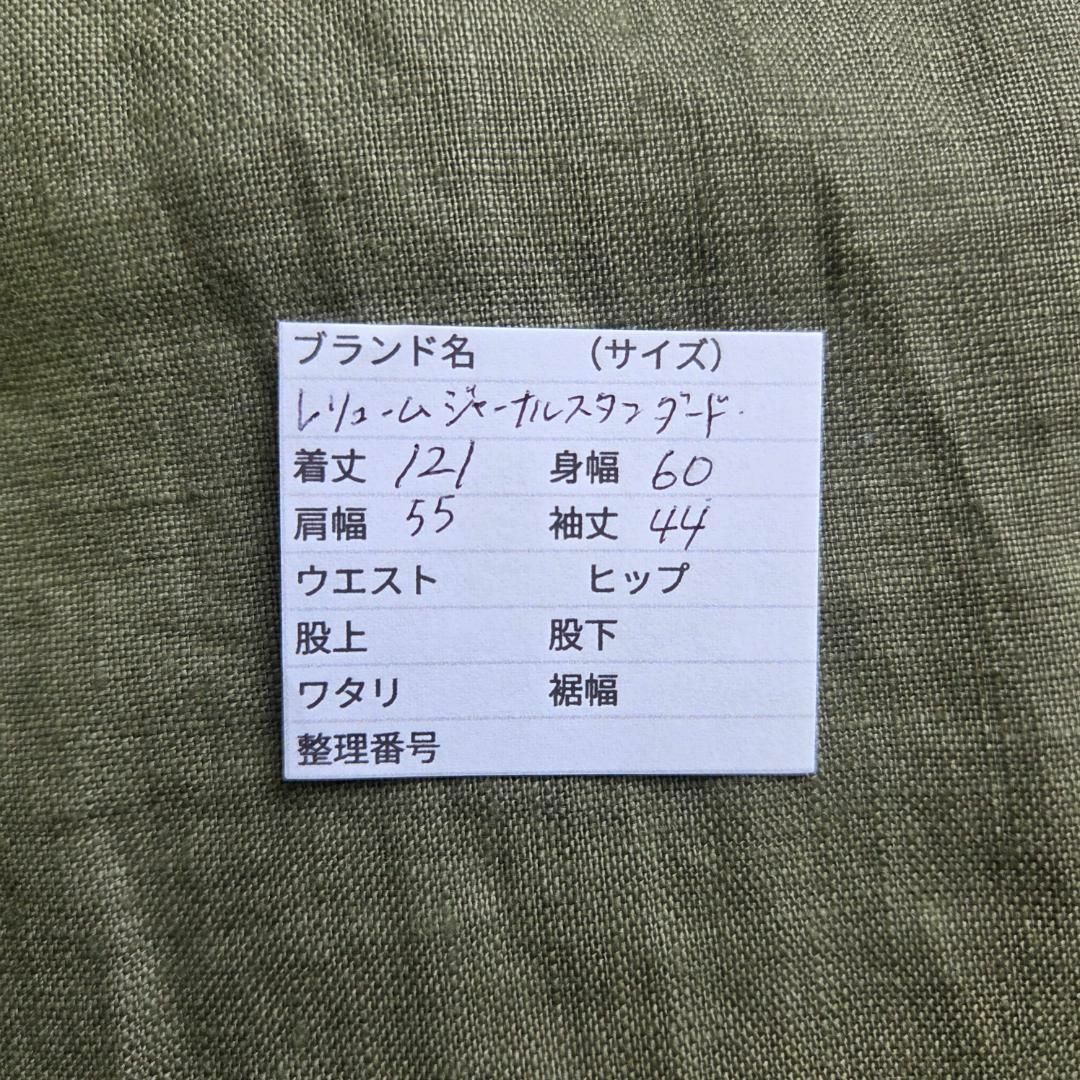 ブランド名 (サイズ)
レリュームジャーナルスタンダード.
着丈 121 身幅 60
肩幅 55 袖丈 44
ウエスト ヒップ
股上 股下
ワタリ 裾幅
整理番号